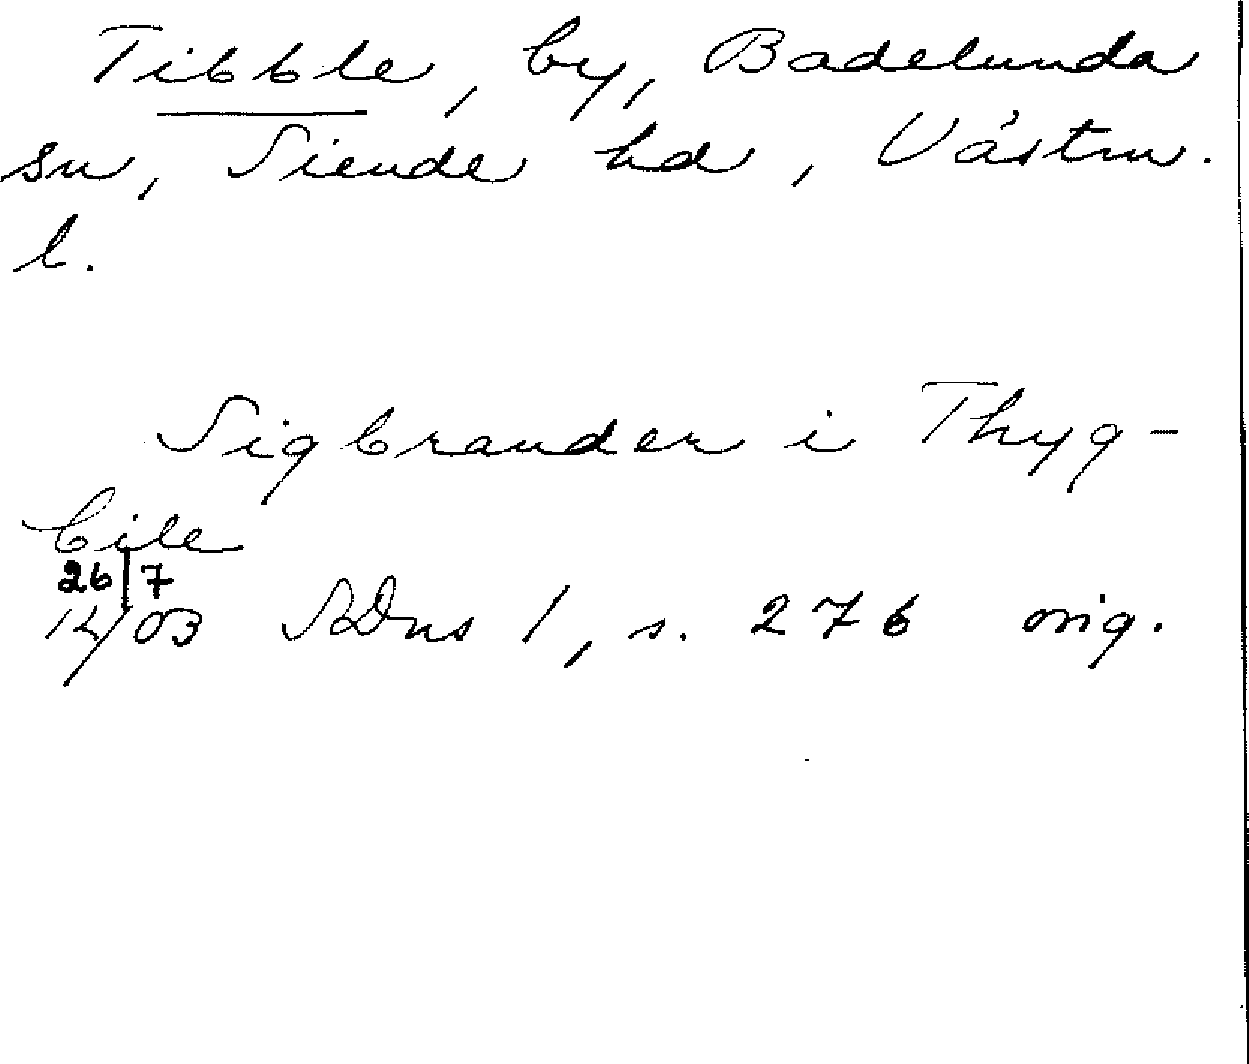 Tibble, by, Badelunda
sn, Siende hd, Västm.
l.
Sigbrander i Thyg-
bile
26/7
14/03 SDns 1, s. 276 orig.